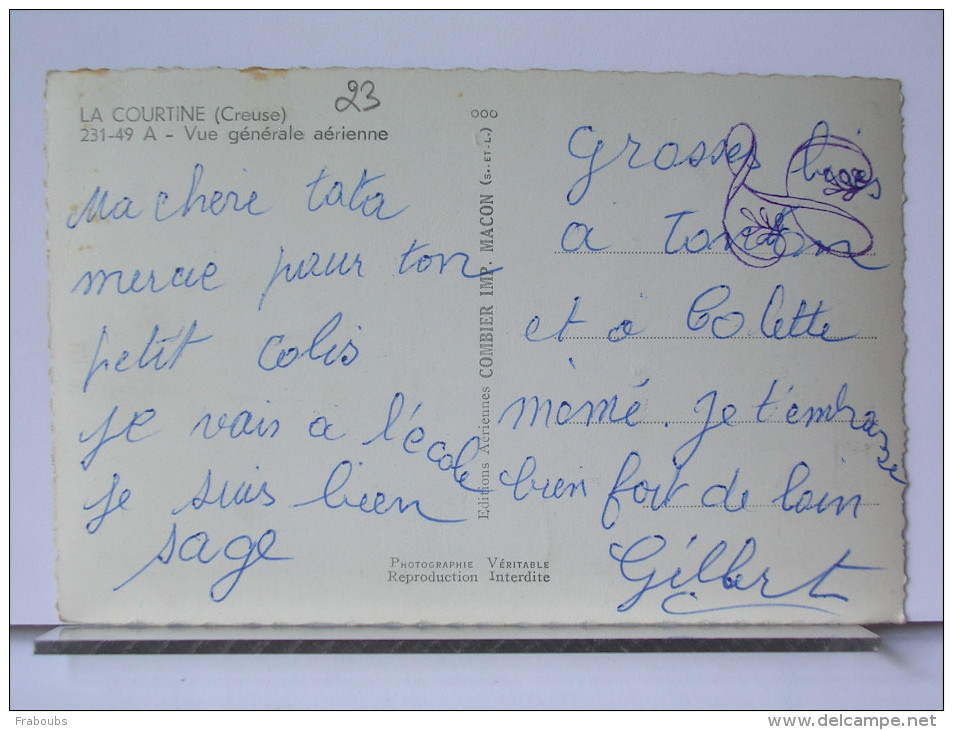 LA COURTINE (Creuse)
231-49 A - Vue générale aérienne
23
Ma chère tata
mercie pour ton
petit colis
je vais a l'école
je suis bien
sage
Editions Aériennes COMBIER IMP. MACON (S.-ET-L.)
PHOTOGRAPHIE VÉRITABLE
Reproduction Interdite
Grosses bises
a tonton
et a Colette
mémé. je t'embrasse
bien fort de loin
Gilbert
Fraboubs
www.delcampe.net